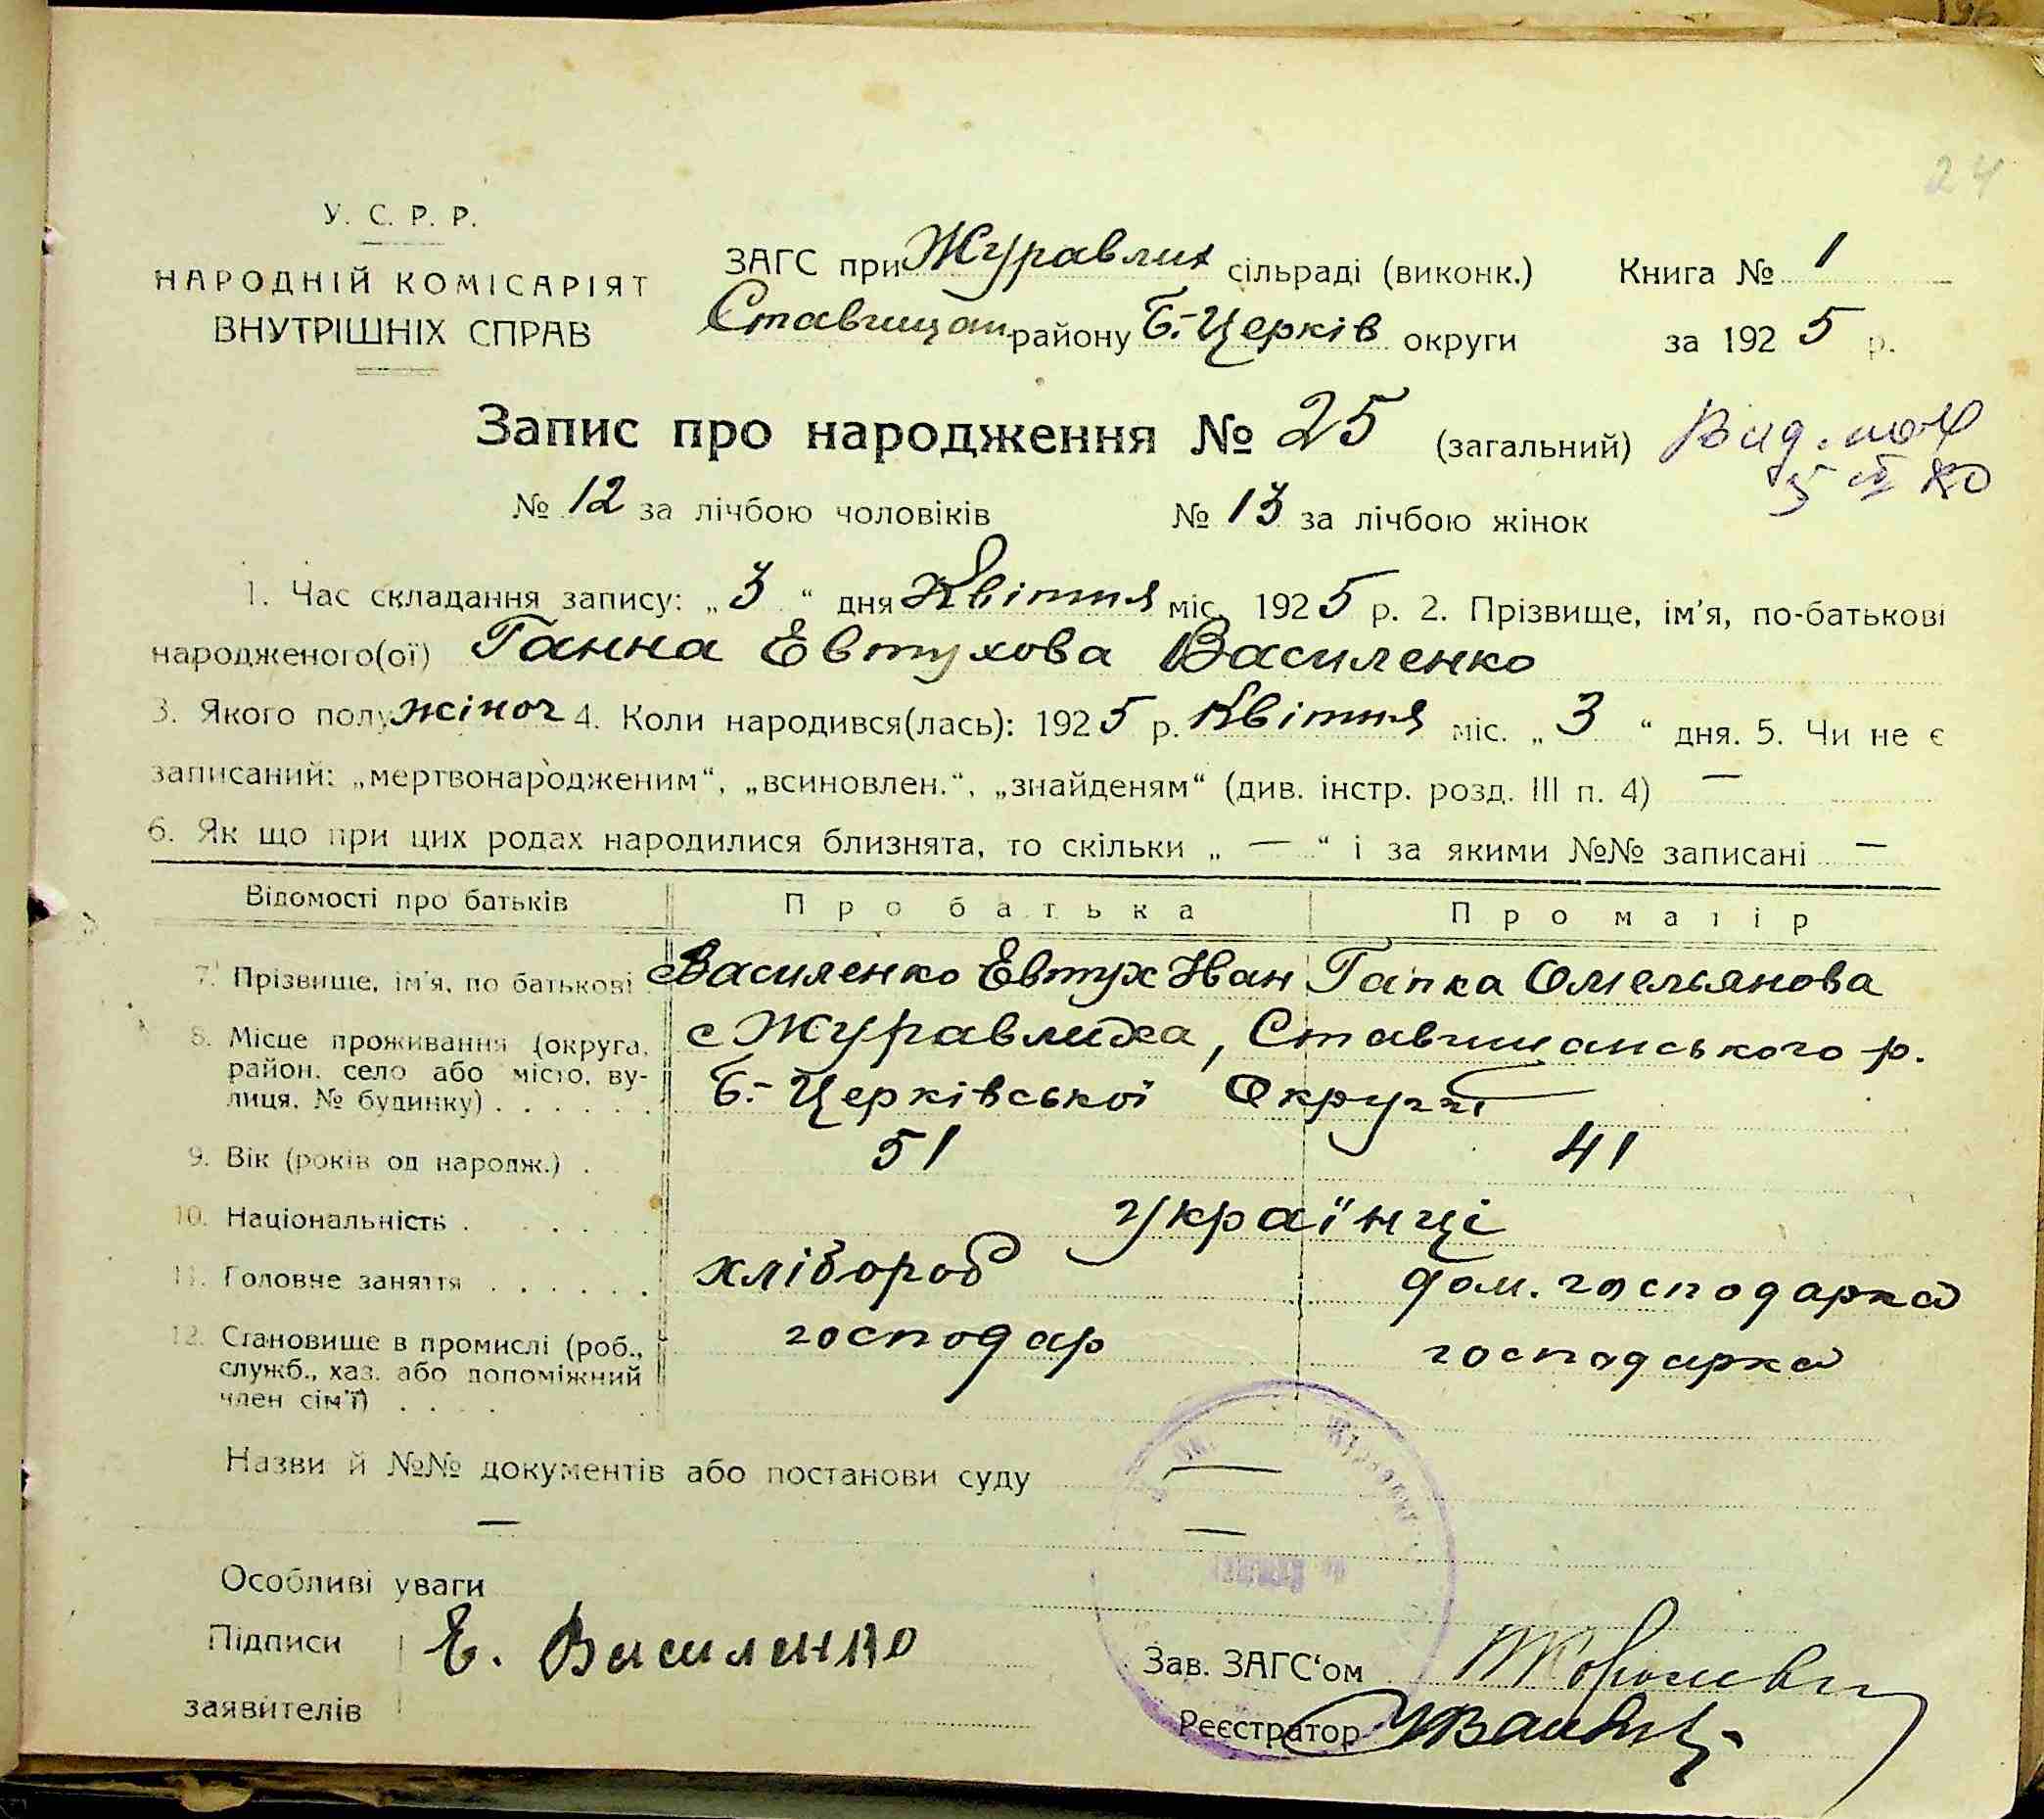 24
У. С. Р. Р.
НАРОДНІЙ КОМІСАРІЯТ
ВНУТРІШНІХ СПРАВ
ЗАГС при Журавлих сільраді (виконк.) Книга № 1
Ставищан району Б.-Церків округи за 1925 р.
Запис про народження № 25 (загальний)
№ 12 за лічбою чоловіків № 13 за лічбою жінок
1. Час складання запису: „3“ дня Квітня міс. 1925 р. 2. Прізвище, ім'я, по-батькові
народженого(ої) Ганна Евтухова Василенко
3. Якого полу жіноч 4. Коли народився(лась): 1925 р. Квітня міс. „3“ дня. 5. Чи не є
записаний: „мертвонародженим“, „всиновлен.“, „знайденям“ (див. інстр. розд. III п. 4) —
6. Як що при цих родах народилися близнята, то скільки „ — “ і за якими №№ записані —
Відомості про батьків Про батька Про матір
7. Прізвище, ім'я, по батькові Василенко Евтух Іван Гапка Омельянова
8. Місце проживання (округа, район, село або місто, вулиця, № будинку) . . . . . . с Журавлиха, Ставищанського р.
Б.-Церківської Округи
9. Вік (років од народж.) . 51 41
10. Національність . . . . . українці
11. Головне заняття . . . . . . хлібороб дом. господарка
12. Становище в промислі (роб., служб., хаз. або допоміжний член сім'ї) . . . . господар господарка
Назви й №№ документів або постанови суду —
— —
Особливі уваги
Підписи заявителів Е. Василенко
Зав. ЗАГС'ом
Реєстратор